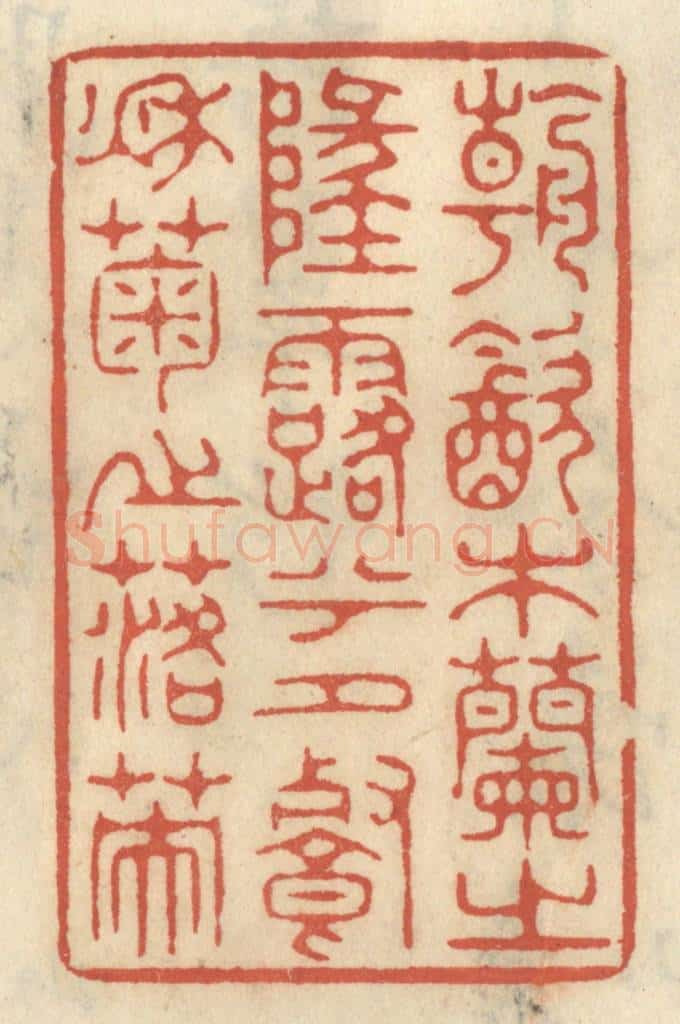 朝飲木蘭之
墜露兮夕餐
秋菊之落英
Shufawang.CN